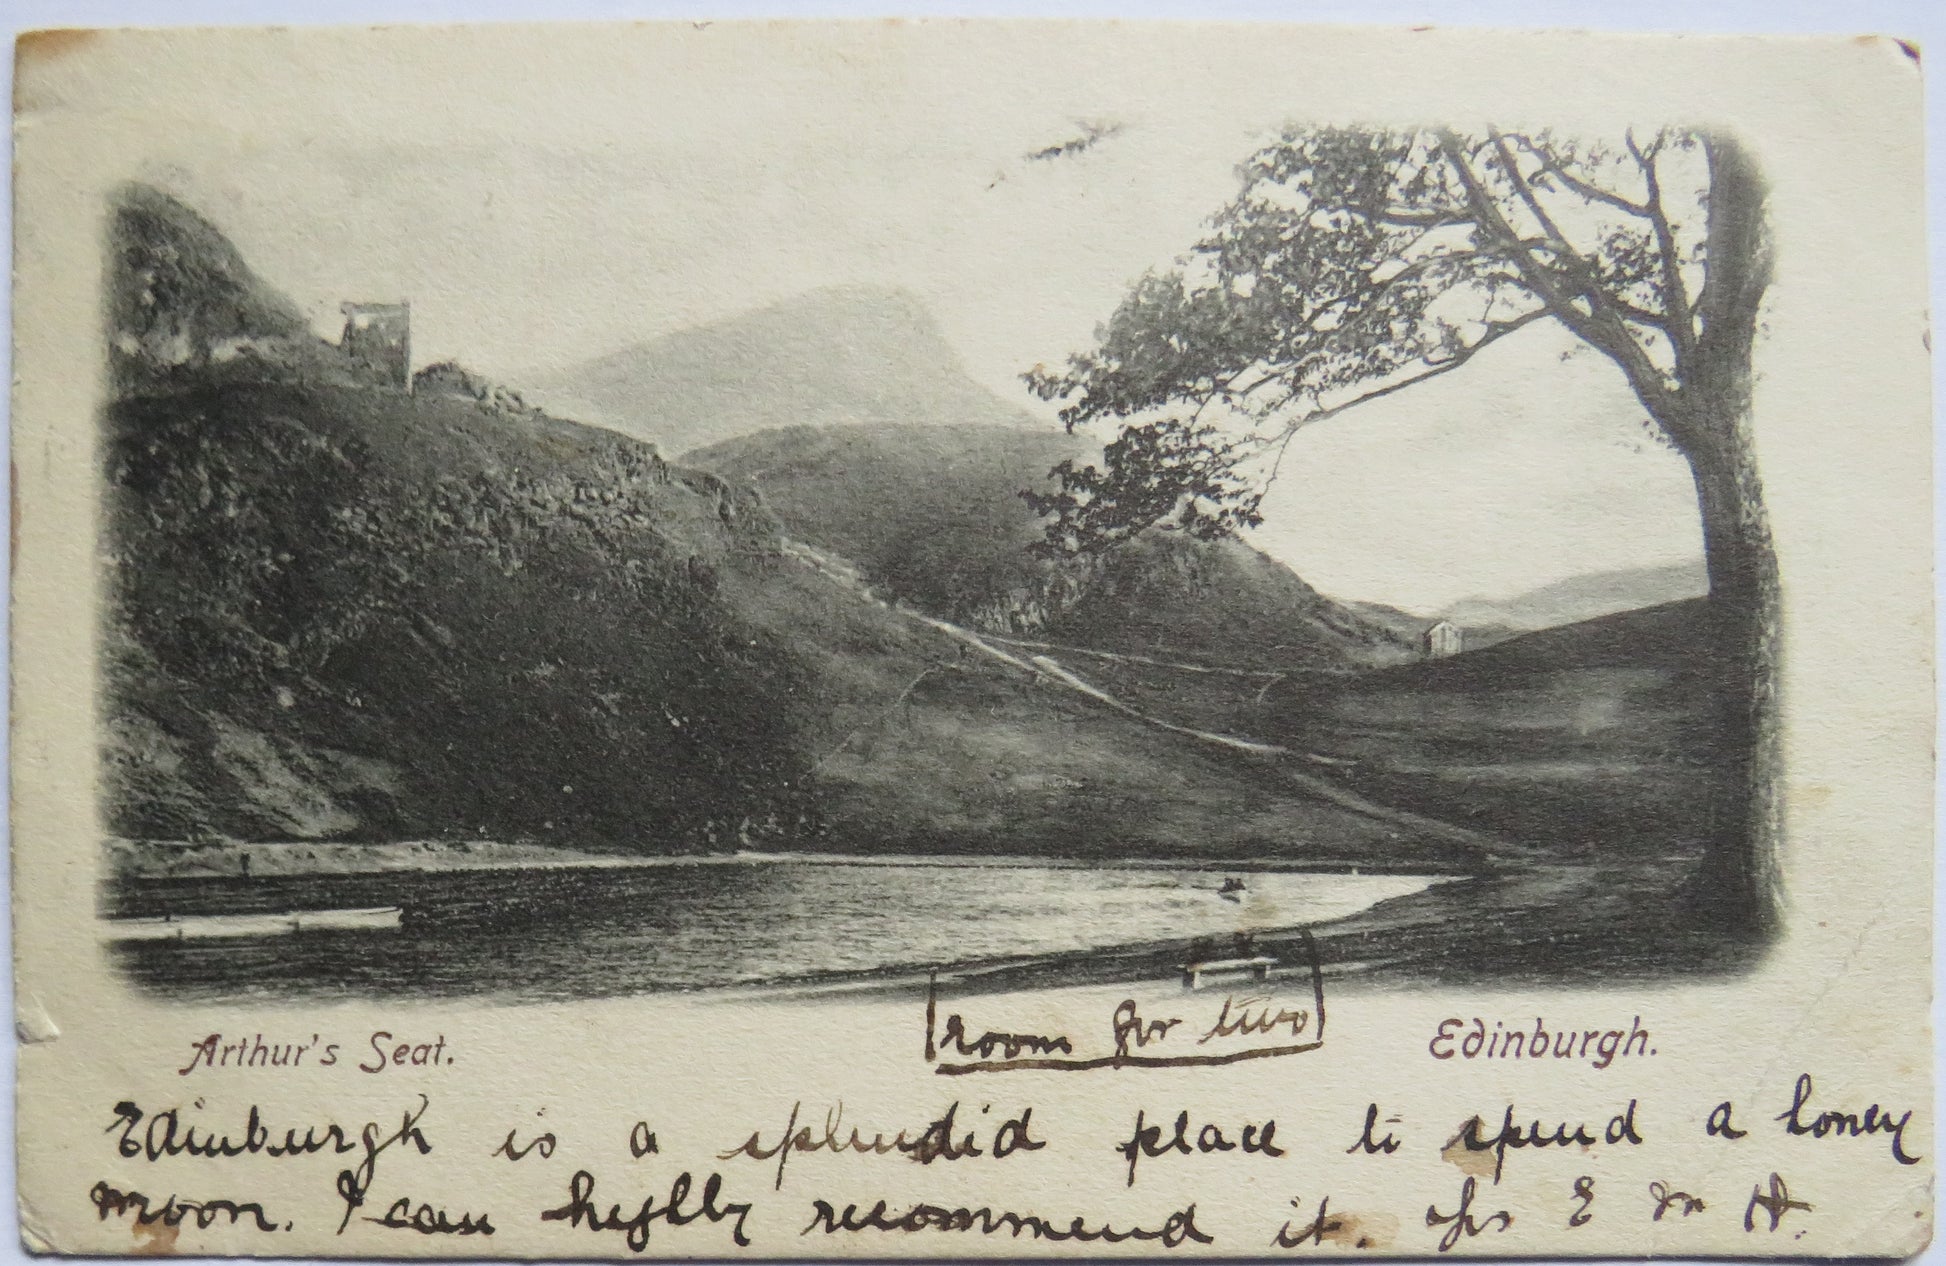 room for two
Arthur's Seat. Edinburgh.
Edinburgh is a splendid place to spend a honey
moon. I can highly recommend it. E M H.